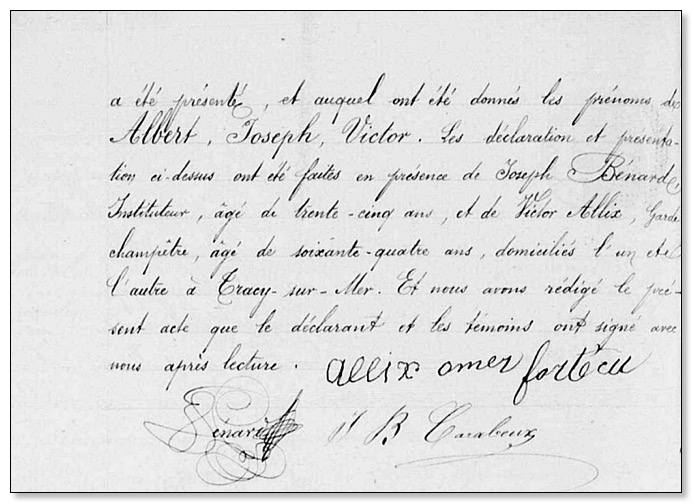 a été présenté, et auquel ont été donnés les prénoms de
Albert, Joseph, Victor. Les déclaration et présenta-
tion ci-dessus ont été faites en présence de Joseph Bénard,
Instituteur, âgé de trente-cinq ans, et de Victor Allix, Garde
champêtre, âgé de soixante-quatre ans, domiciliés l'un et
l'autre à Tracy-sur-Mer. Et nous avons rédigé le pré-
sent acte que le déclarant et les témoins ont signé avec
nous après lecture.
allix omer
Bénard J B Carabeux